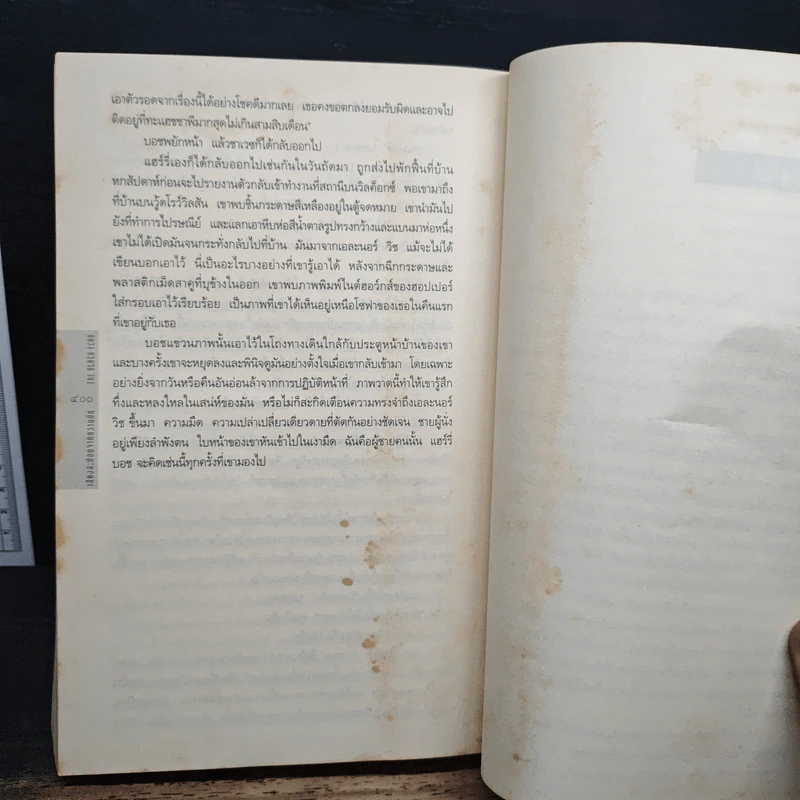 เอาตัวรอดจากเรื่องนี้ได้อย่างโชคดีมากเลย เธอคงขอตกลงยอมรับผิดและอาจไป
ติดอยู่ที่ทะแฮชชาพีมากสุดไม่เกินสามสิบเดือน"
บอชพยักหน้า แล้วชาเวซก็ได้กลับออกไป
แฮร์รี่เองก็ได้กลับออกไปเช่นกันในวันถัดมา ถูกส่งไปพักฟื้นที่บ้าน
หกสัปดาห์ก่อนจะไปรายงานตัวกลับเข้าทำงานที่สถานีบนวิลค็อกซ์ พอเขามาถึง
ที่บ้านบนวู้ดโรว์วิลสัน เขาพบชิ้นกระดาษสีเหลืองอยู่ในตู้จดหมาย เขานำมันไป
ยังที่ทำการไปรษณีย์ และแลกเอาหีบห่อสีน้ำตาลรูปทรงกว้างและแบนมาห่อหนึ่ง
เขาไม่ได้เปิดมันจนกระทั่งกลับไปที่บ้าน มันมาจากเอละนอร์ วิช แม้จะไม่ได้
เขียนบอกเอาไว้ นี่เป็นอะไรบางอย่างที่เขารู้เอาได้ หลังจากฉีกกระดาษและ
พลาสติกเม็ดสาคูที่บุข้างในออก เขาพบภาพพิมพ์ไนต์ฮอว์กส์ของฮอปเปอร์
ใส่กรอบเอาไว้เรียบร้อย เป็นภาพที่เขาได้เห็นอยู่เหนือโซฟาของเธอในคืนแรก
ที่เขาอยู่กับเธอ
บอชแขวนภาพนั้นเอาไว้ในโถงทางเดินใกล้กับประตูหน้าบ้านของเขา
และบางครั้งเขาจะหยุดลงและพินิจดูมันอย่างตั้งใจเมื่อเขากลับเข้ามา โดยเฉพาะ
อย่างยิ่งจากวันหรือคืนอันอ่อนล้าจากการปฏิบัติหน้าที่ ภาพวาดนี้ทำให้เขารู้สึก
ทึ่งและหลงใหลในเสน่ห์ของมัน หรือไม่ก็สะกิดเตือนความทรงจำถึงเอละนอร์
วิช ขึ้นมา ความมืด ความเปล่าเปลี่ยวเดียวดายที่ตัดกันอย่างชัดเจน ชายผู้นั่ง
อยู่เพียงลำพังตน ใบหน้าของเขาหันเข้าไปในเงามืด ฉันคือผู้ชายคนนั้น แฮร์รี่
บอช จะคิดเช่นนี้ทุกครั้งที่เขามองไป
THE BLACK ECHO
๔๐๐